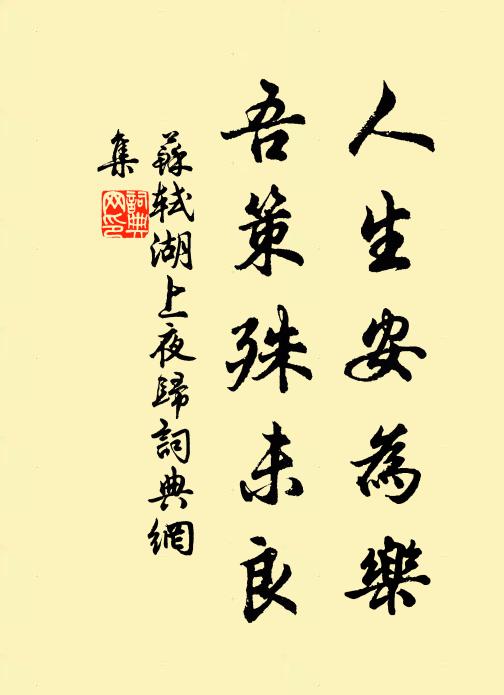 人生安為樂
吾策殊未良
蘇軾湖上夜歸詞典網
集
詞典網印